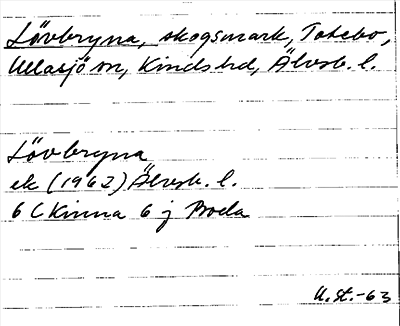 Lövbryna, skogsmark, Totebo,
Ullasjö sn, Kinds hd, Älvsb. l.
Lövbryna
ek (1962) Älvsb. l.
6 C Kinna 6 j Broda
U.st.-63